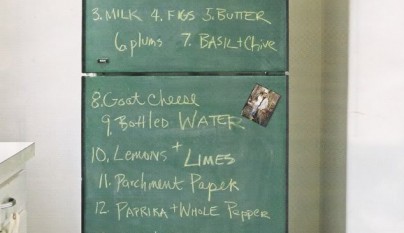 3. MILK 4. FIGS 5. BUTTER
6 plums 7. BASIL + Chive
8. Goat Cheese
9. Bottled WATER
10. Lemons + LIMES
11. Parchment Paper
12. PAPRIKA + WHOLE Pepper